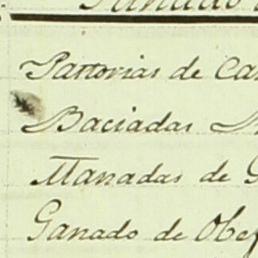 Ganado
Partorias de Ca
Baciadas
Manadas de G
Ganado de Obej